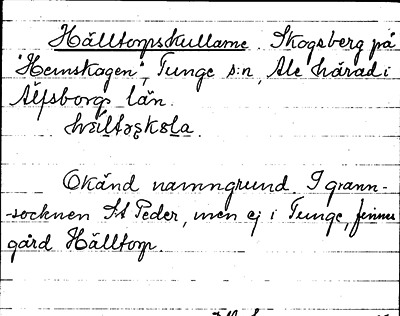 Hälltorpskullarne. Skogsberg på
"Hemskogen", Tunge s:n, Ale härad i
Älfsborgs län.
Okänd namngrund. I grann-
-socknen St Peder, men ej i Tunge, finnes
gård Hälltorp.